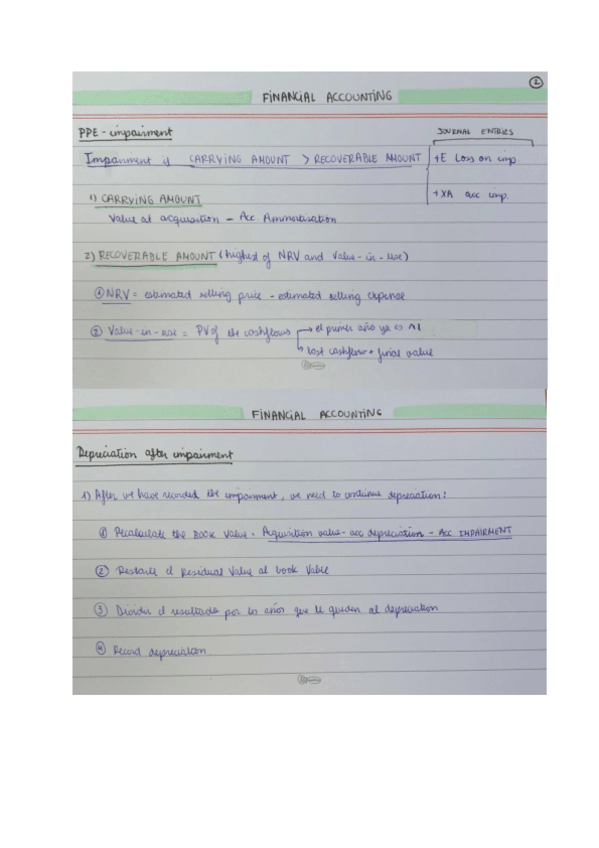 2
FINANCIAL ACCOUNTING
PPE - impairment
JOURNAL ENTRIES
Impairment if CARRYING AMOUNT > RECOVERABLE AMOUNT
+E Loss on imp
+XA acc imp.
1) CARRYING AMOUNT
Value at acquisition - Acc Ammortisation
2) RECOVERABLE AMOUNT (highest of NRV and Value-in-use)
① NRV = estimated selling price - estimated selling expense
② Value-in-use = PV of the cashflows → el primer año ya es N1
↳ last cashflow + final value
FINANCIAL ACCOUNTING
Depreciation after impairment
1) After we have recorded the impairment, we need to continue depreciation:
① Recalculate the BOOK Value = Acquisition value - acc depreciation - Acc IMPAIRMENT
② Restarle el Residual Value al book Value
③ Dividir el resultado por los años que le queden al depreciation
④ Record depreciation